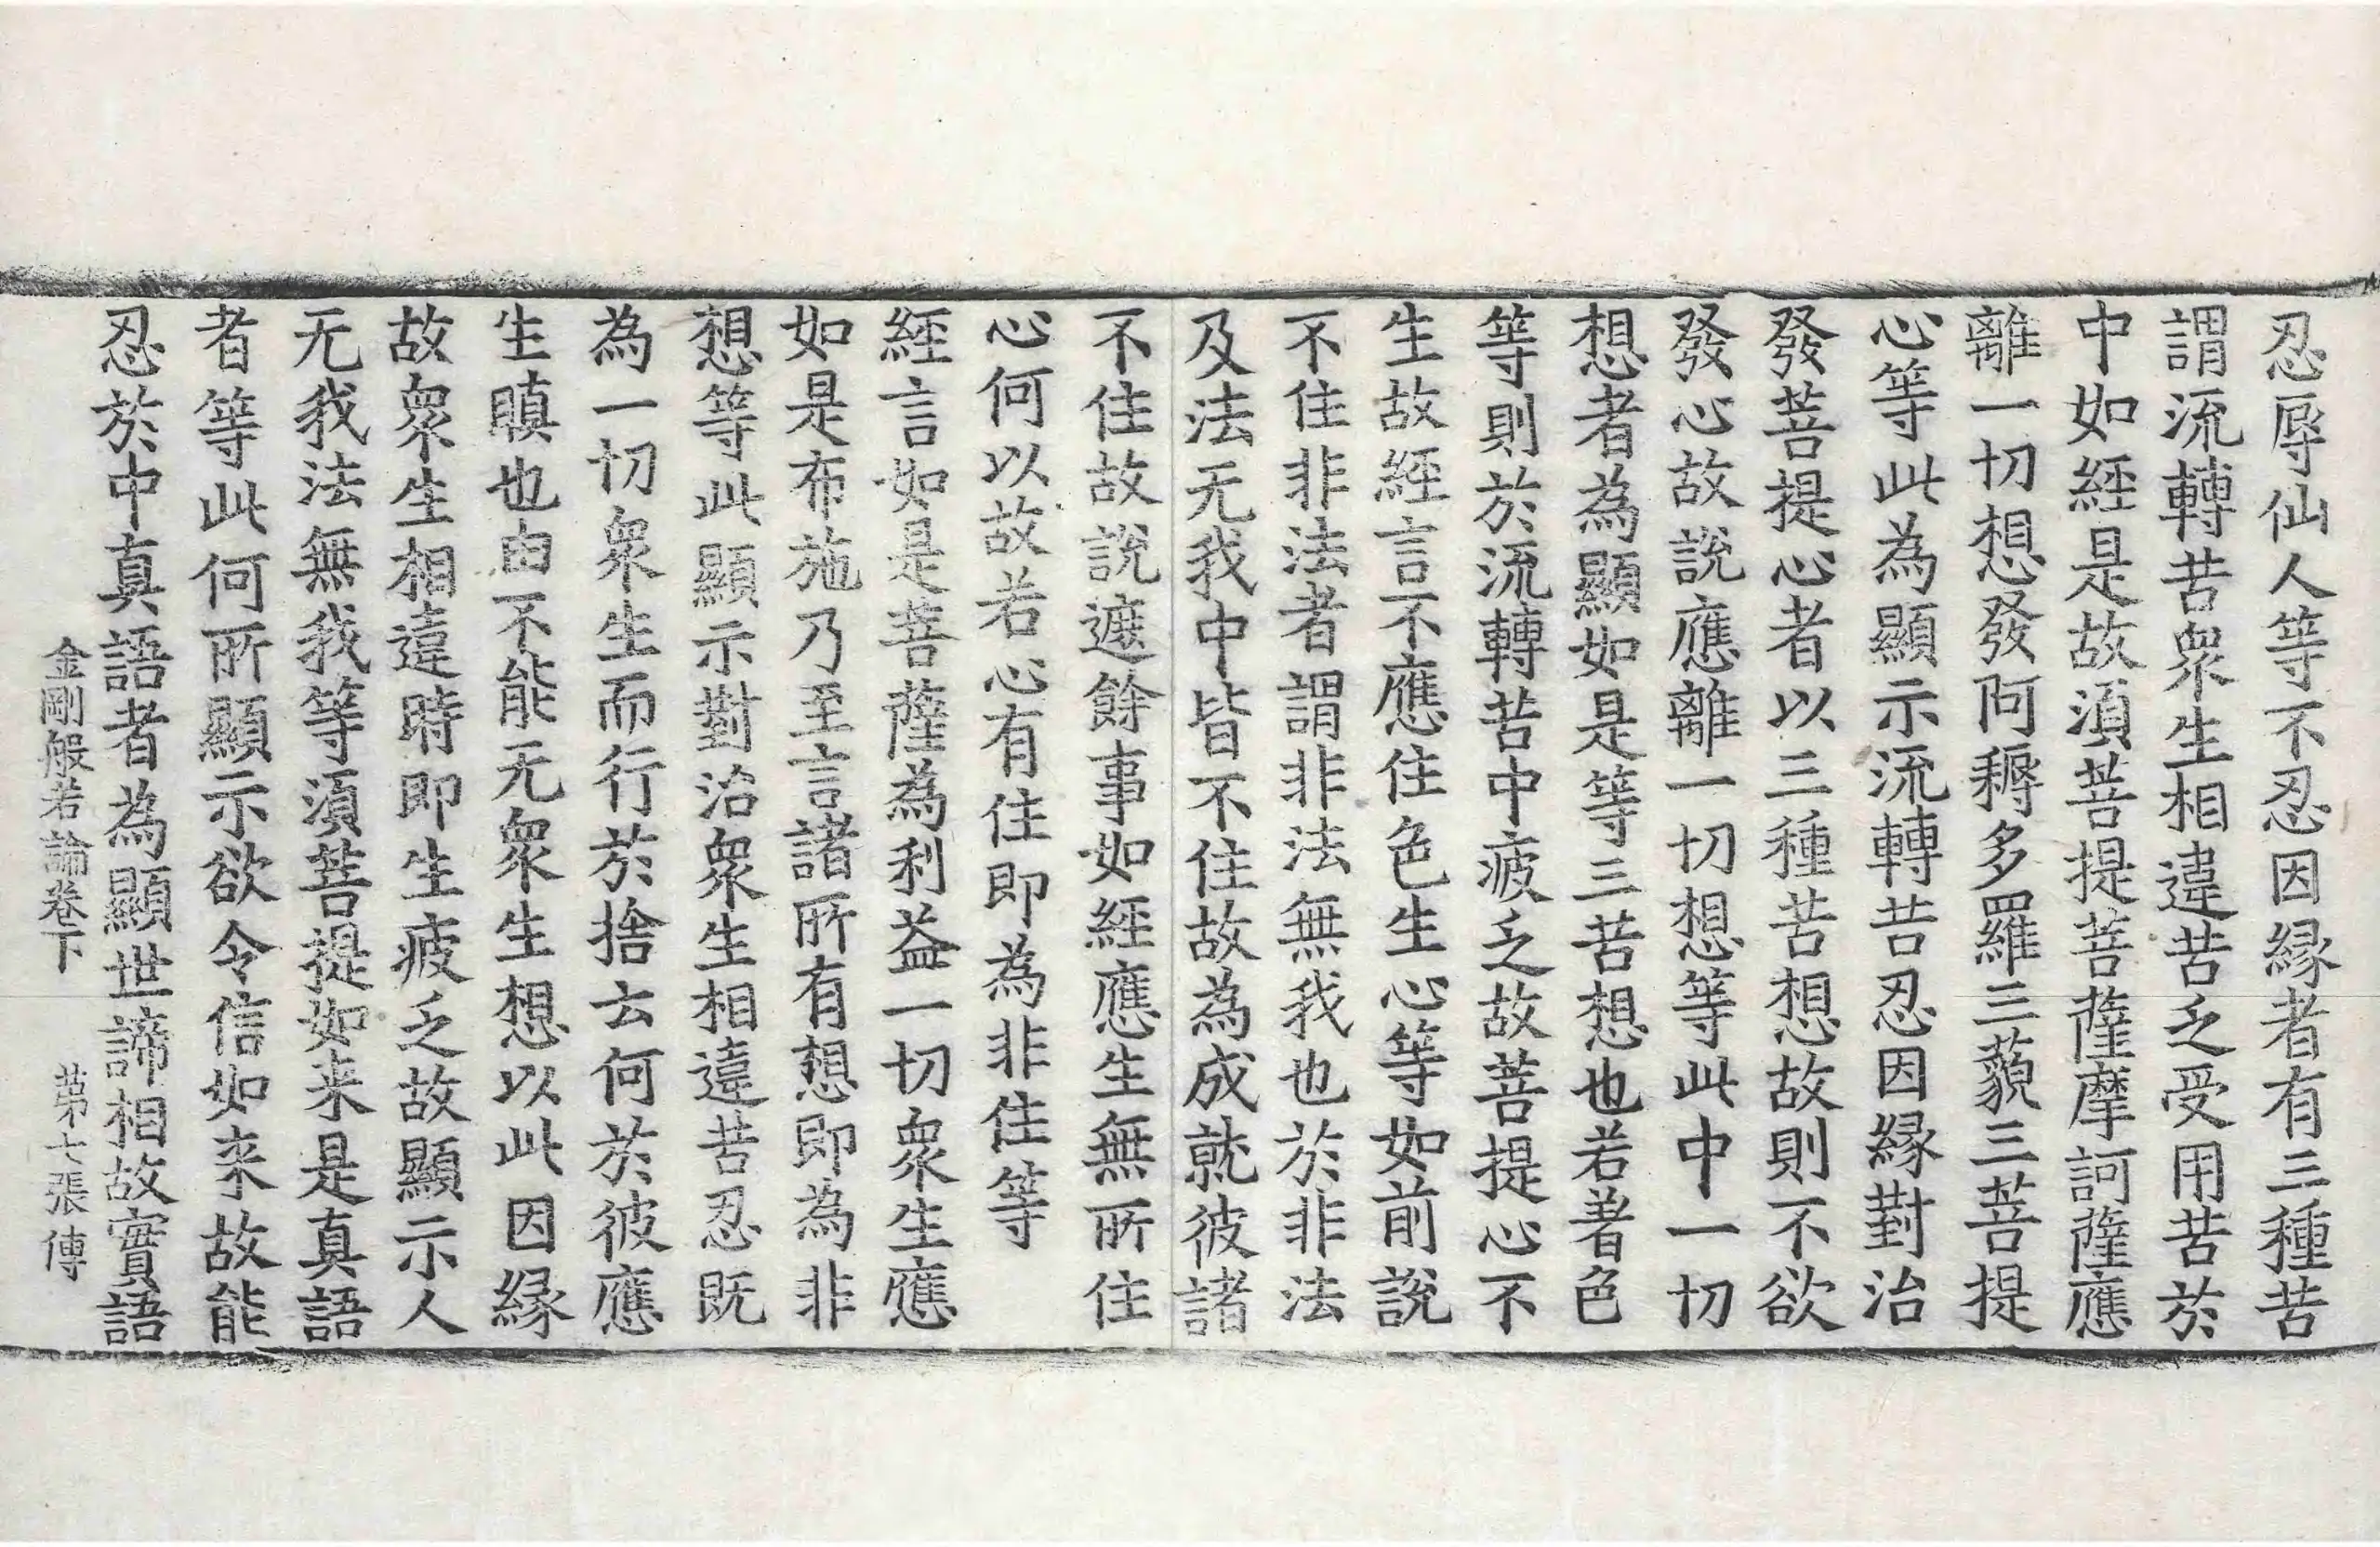 忍辱仙人等不忍因緣者有三種苦
謂流轉苦衆生相違苦乏受用苦於
中如經是故湏菩提菩薩摩訶薩應
離一切想發阿耨多羅三藐三菩提
心等此為顯示流轉苦忍因緣對治
發菩提心者以三種苦想故則不欲
發心故說應離一切想等此中一切
想者為顯如是等三苦想也若著色
等則於流轉苦中疲乏故菩提心不
生故經言不應住色生心等如前說
不住非法者謂非法無我也於非法
及法无我中皆不住故為成就彼諸
不住故說遮餘事如經應生無所住
心何以故若心有住即為非住等
經言如是菩薩為利益一切衆生應
如是布施乃至言諸所有想即為非
想等此顯示對治衆生相違苦忍既
為一切衆生而行於捨云何於彼應
生瞋也由不能无衆生想以此因緣
故衆生相違時即生疲乏故顯示人
无我法無我等湏菩提如来是真語
者等此何所顯示欲令信如来故能
忍於中真語者為顯世諦相故實語
金剛般若論卷下　第七張　傳